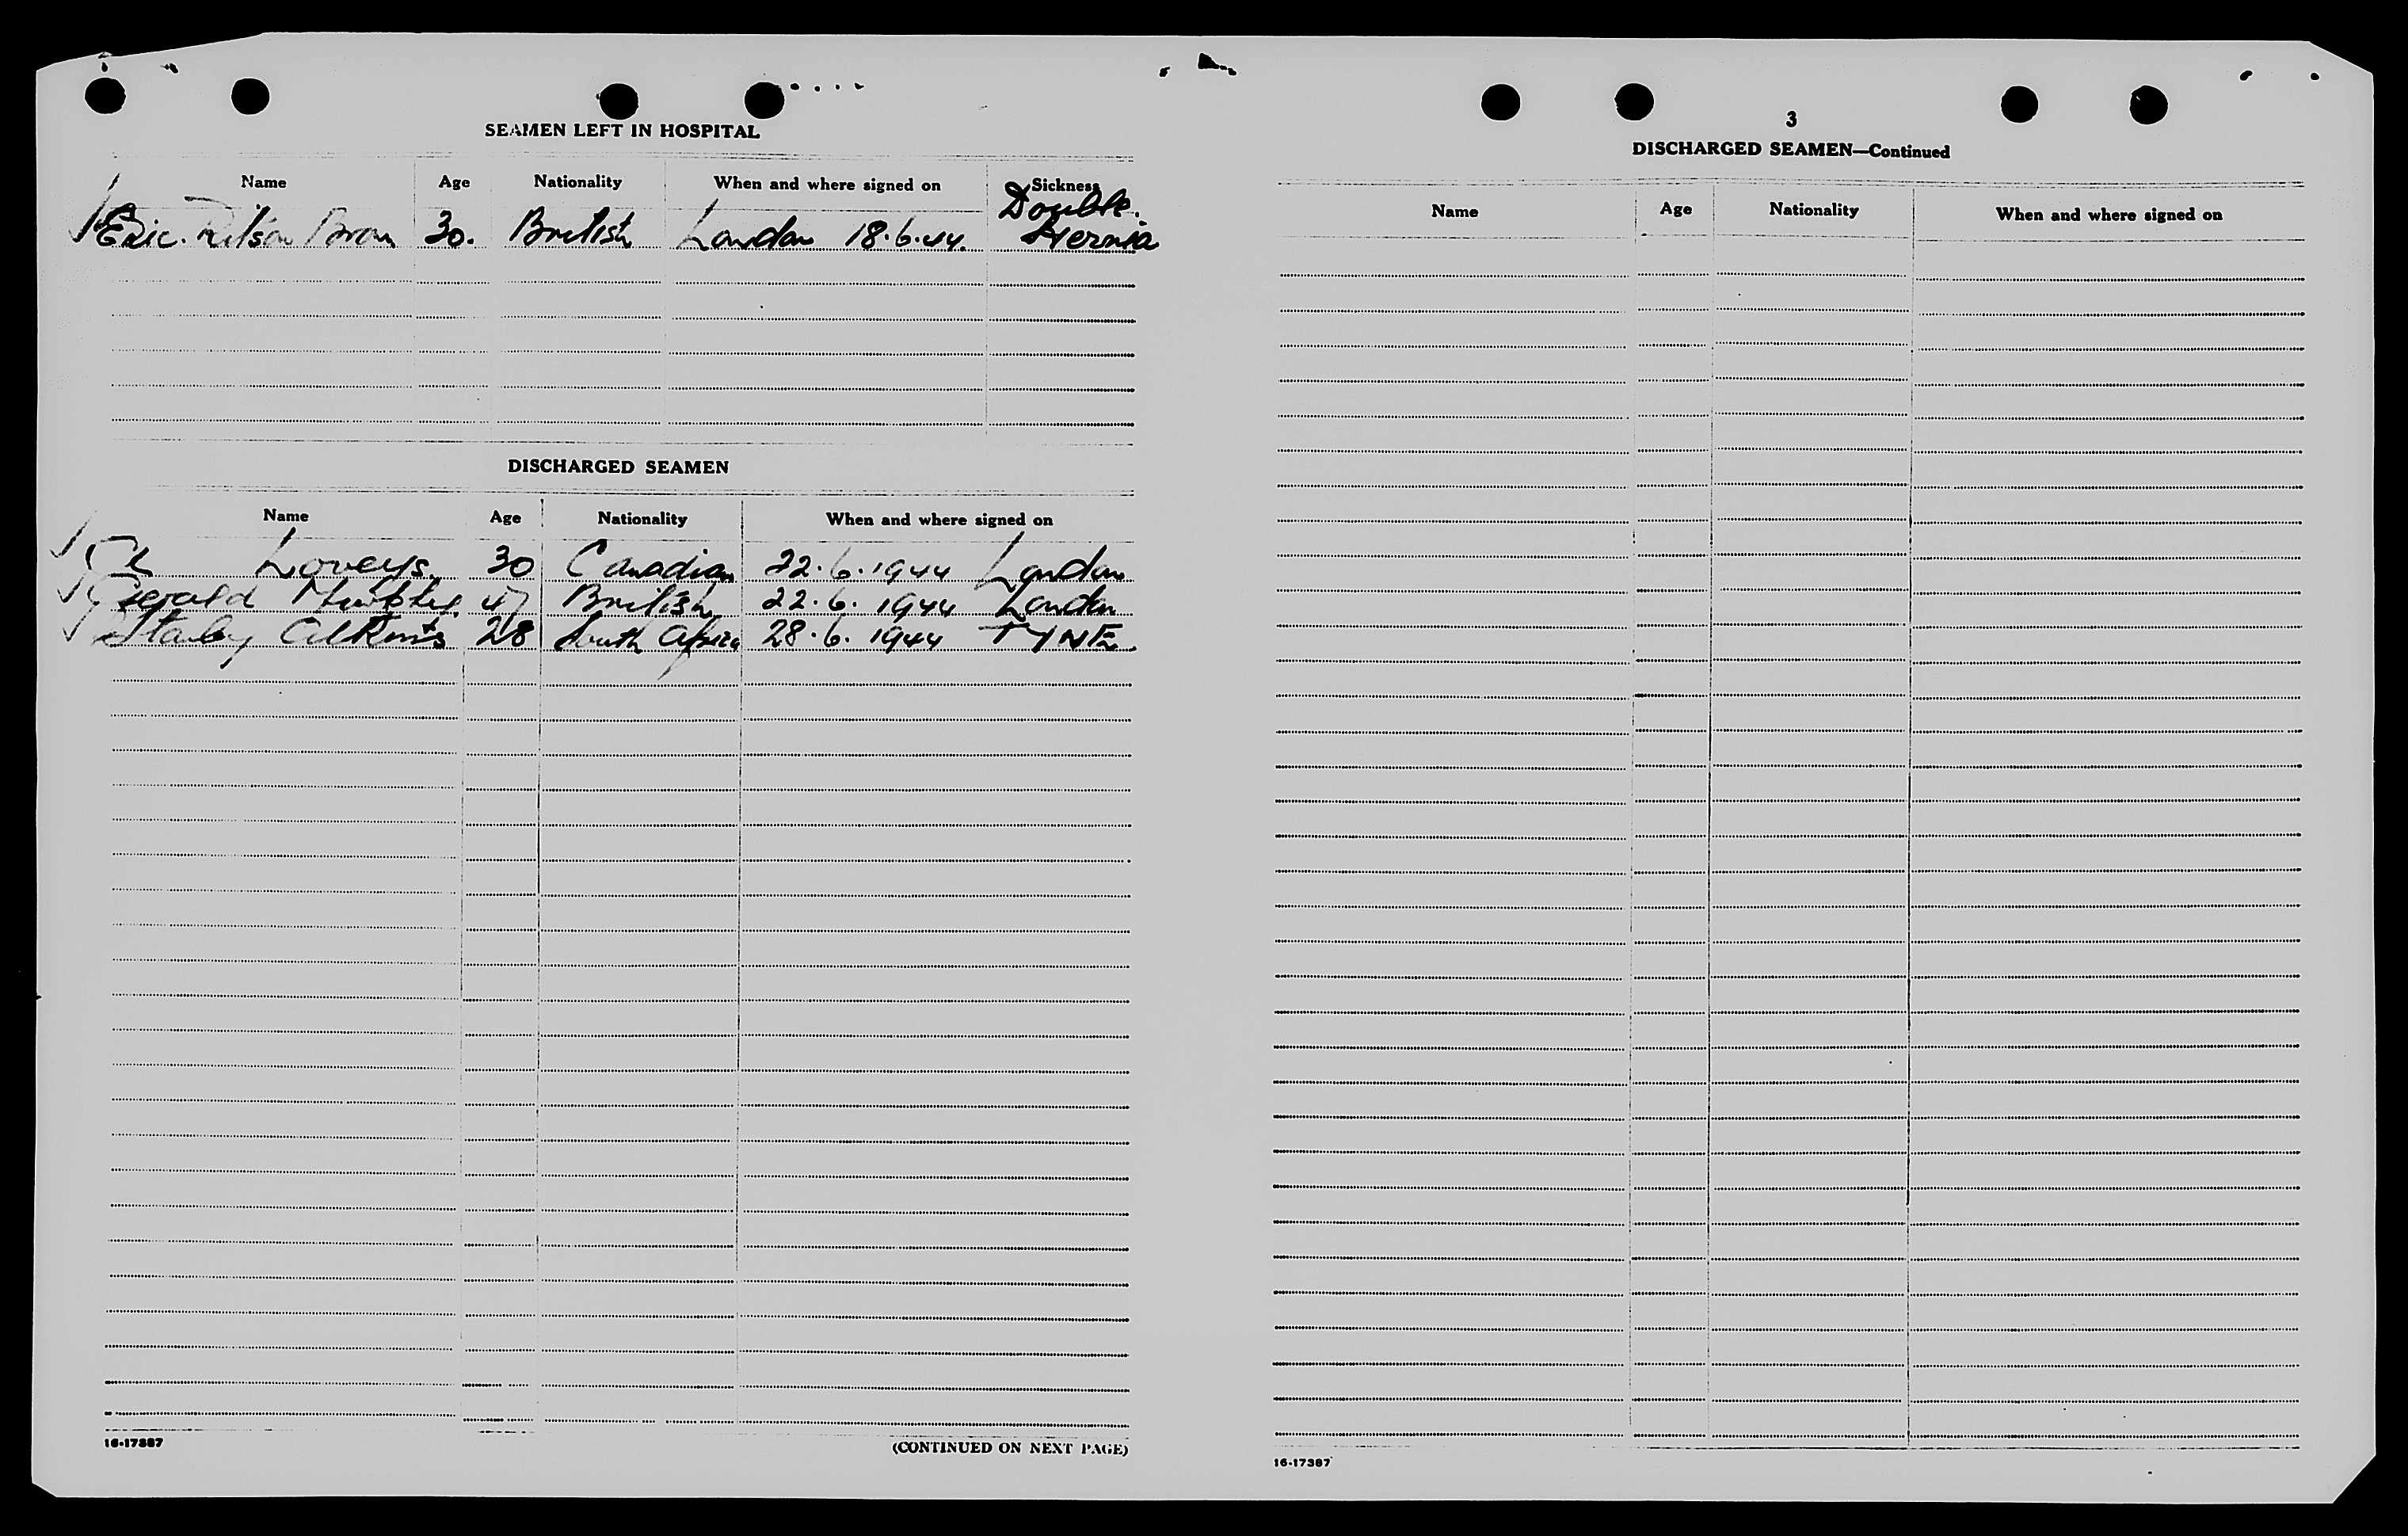 SEAMEN LEFT IN HOSPITAL
Name Age Nationality When and where signed on Sickness
Double
Eric 30. British London 18.6.44. Hernia
DISCHARGED SEAMEN
Name Age Nationality When and where signed on
Loveys. 30 Canadian 22.6.1944 London
Gerald Murphy. 47 British 22.6.1944 London
Stanley Atkins 28 South Africa 28.6.1944 TYNE.
16-17387
(CONTINUED ON NEXT PAGE)
3
DISCHARGED SEAMEN—Continued
Name Age Nationality When and where signed on
16-17387